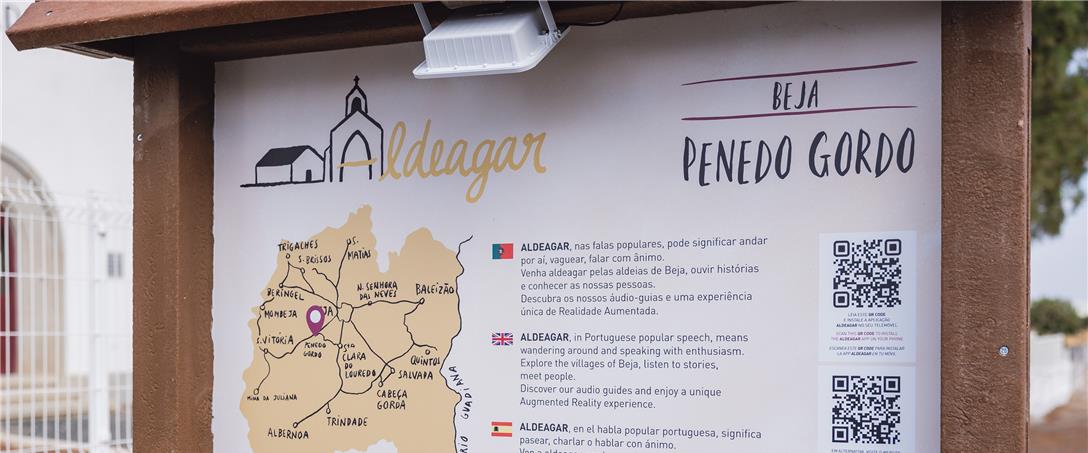 Aldeagar
BEJA
PENEDO GORDO
TRIGACHES
S. BRISSOS
S. MATIAS
BERINGEL
N. SENHORA
DAS NEVES
BALEIZÃO
MOMBEJA
JA
S. VITÓRIA
PENEDO
GORDO
STA
CLARA
DO
LOUREDO
QUINTOS
SALVADA
MINA DA JULIANA
CABEÇA
GORDA
TRINDADE
ALBERNOA
RIO GUADIANA
ALDEAGAR, nas falas populares, pode significar andar
por aí, vaguear, falar com ânimo.
Venha aldeagar pelas aldeias de Beja, ouvir histórias
e conhecer as nossas pessoas.
Descubra os nossos áudio-guias e uma experiência
única de Realidade Aumentada.
ALDEAGAR, in Portuguese popular speech, means
wandering around and speaking with enthusiasm.
Explore the villages of Beja, listen to stories,
meet people.
Discover our audio guides and enjoy a unique
Augmented Reality experience.
ALDEAGAR, en el habla popular portuguesa, significa
pasear, charlar o hablar con ánimo.
LEIA ESTE QR CODE
E INSTALE A APLICAÇÃO
ALDEAGAR NO SEU TELEMÓVEL
SCAN THIS QR CODE TO INSTALL
THE ALDEAGAR APP ON YOUR PHONE
ESCANEA ESTE QR CODE PARA INSTALAR
LA APP ALDEAGAR EN TU MÓVIL